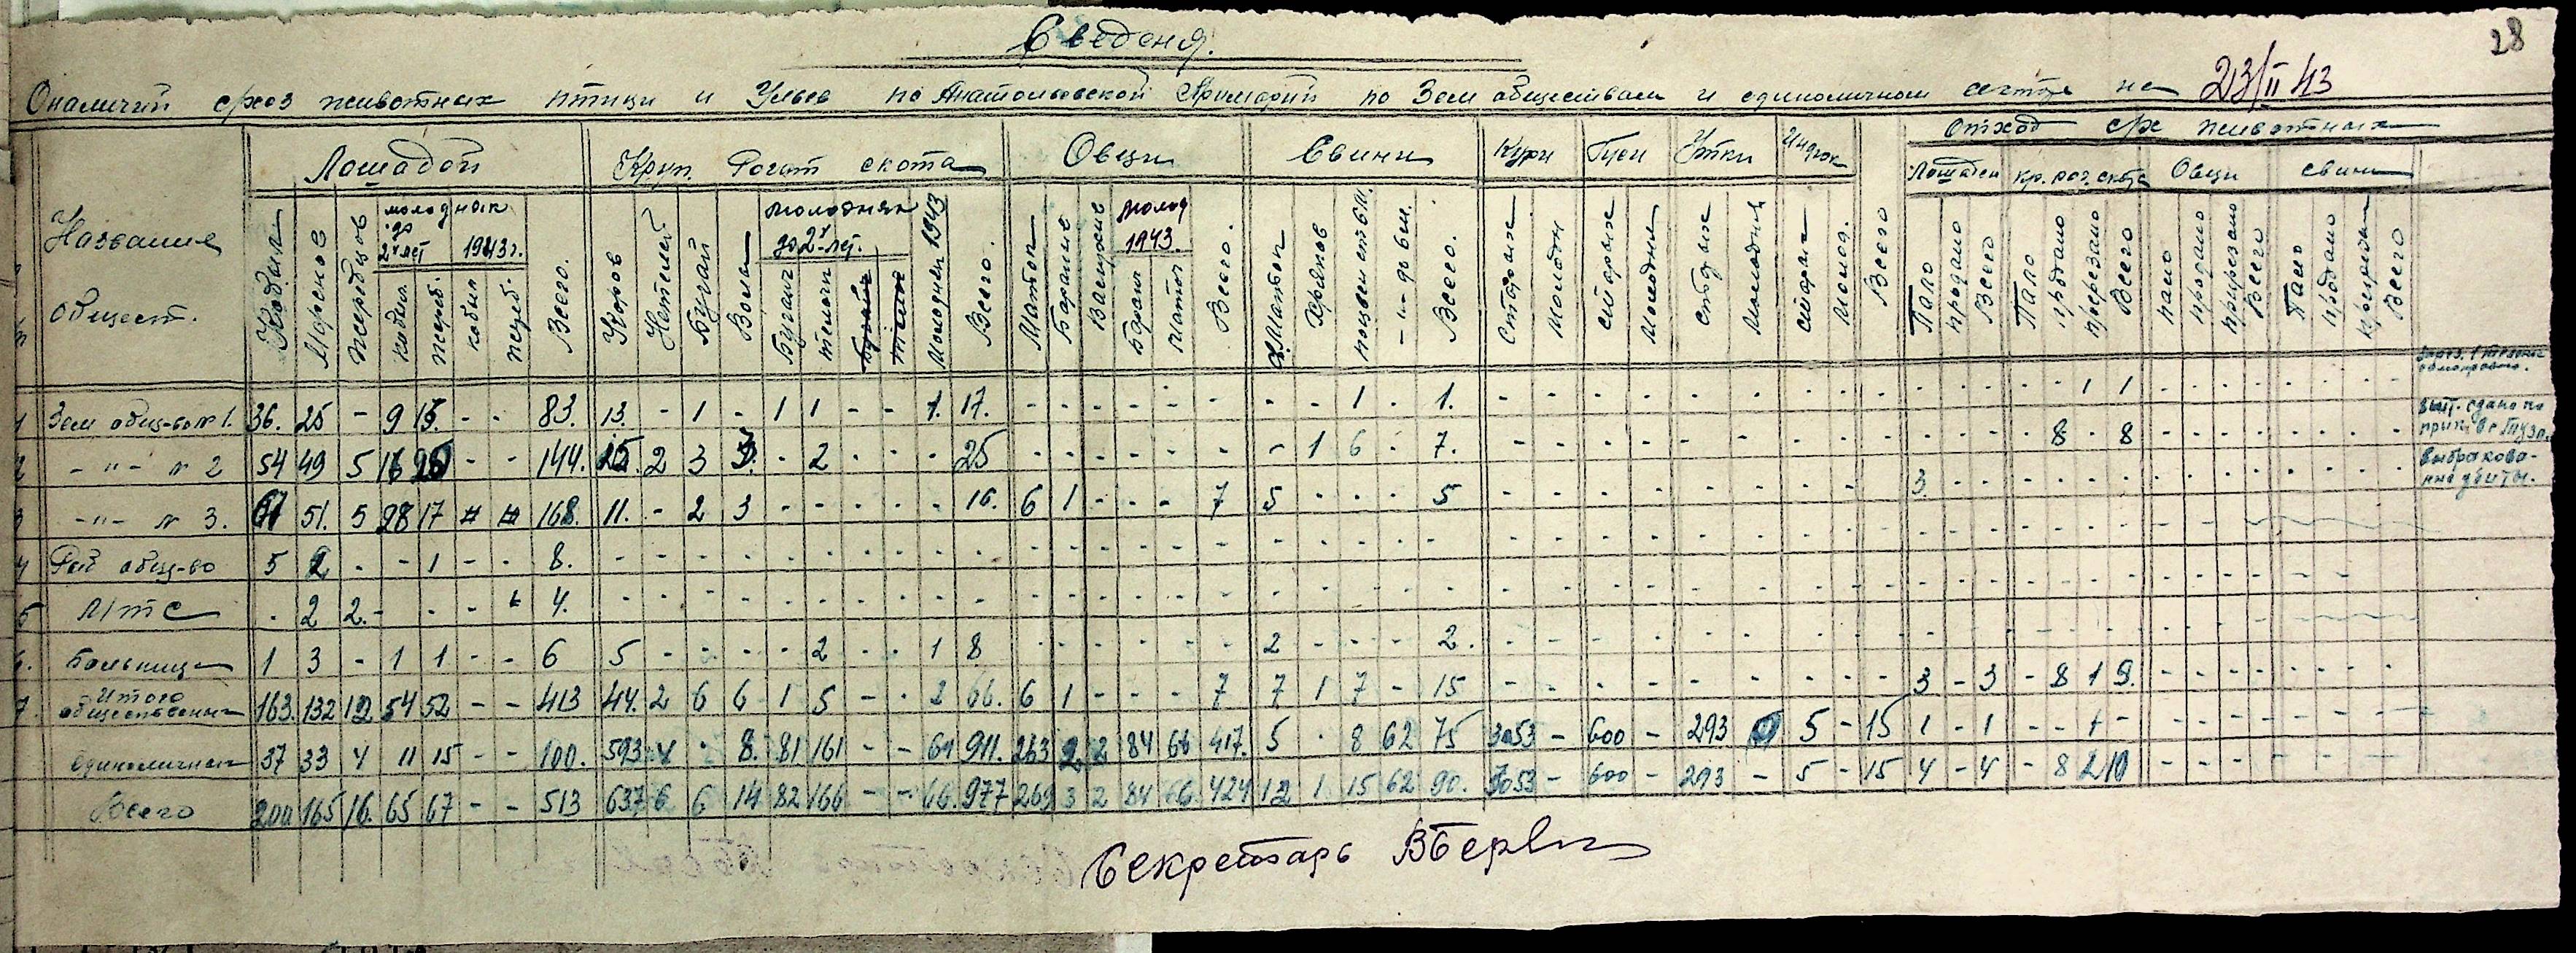 28
Сведения.
О наличии с/хоз животных птицы и Ульев по Анатольевской Примарии по Зем обществам и единоличном секторе на 23/II 43
Название Общест.
Лошадей
Круп. Рогат скота
Овци
Свини
Куры Гуси Утки Индюк
Всего
Отход с/х животных
Лошадей кр. рог. скота Овци свини
Кобыл Меренов Жеребцов
молодняк до 2х лет 1943 г.
кобыл. жереб. кобыл жереб. Всего.
Коров Нетелей Бугай Волы
молодняк до 2х лет.
Бугаич телочки Молодняк 1943 Всего.
Маток Бараны Валухие
молод 1943.
Баран Маток Всего.
Маток Хряков поросят 6 м. -"- до 6 м. Всего.
Старых Молодн старых Молодни старых Молодня старых Молод.
Пало продано Всего Пало продано прирезано Всего пало продано прирезано Всего Пало продано прирезан Всего
1 Зем общ-во № 1. 36. 25 - 9 13. - - 83. 13. - 1 - 1 1 - - 1. 17. - - - - - - - - 1 - 1. - - - - - - - - - - - - - - 1 1 - - - - - - - -
2 -"- № 2 54 49 5 16 20 - - 144. 15. 2 3 3. - 2 - - - 25 - - - - - - - 1 6 - 7. - - - - - - - - - - - - - 8 - 8 - - - - - - - -
выбракованные убиты.
3 -"- № 3. 67 51. 5 28 17 168. 11. - 2 3 - - - - - 16. 6 1 - - - 7 5 - - - 5 - - - - - - - - - 3
4 Рай общ-во 5 2 - - 1 - - 8.
5 МТС - 2 2. - - - - 4.
6. Больница 1 3 - 1 1 - - 6 5 - - - - 2 - - 1 8 - - - - - - 2 - - - 2.
7. Итого общественных 163. 132 12 54 52 - - 413 44. 2 6 6 1 5 - - 2 66. 6 1 - - - 7 7 1 7 - 15 - - - - - - - - - 3 - 3 - 8 1 9.
Единоличных 37 33 4 11 15 - - 100. 593 4 - 8. 81 161 - - 64 911. 263 2 2 84 66 417. 5 - 8 62 75 3053 - 600 - 293 5 - 15 1 - 1 - - 1 -
Всего 200 165 16. 65 67 - - 513 637 6 6 14 82 166 - - 66. 977 269 3 2 84 66 424 12 1 15 62 90. 3053 - 600 - 293 - 5 - 15 4 - 4 - 8 2 10
Секретарь